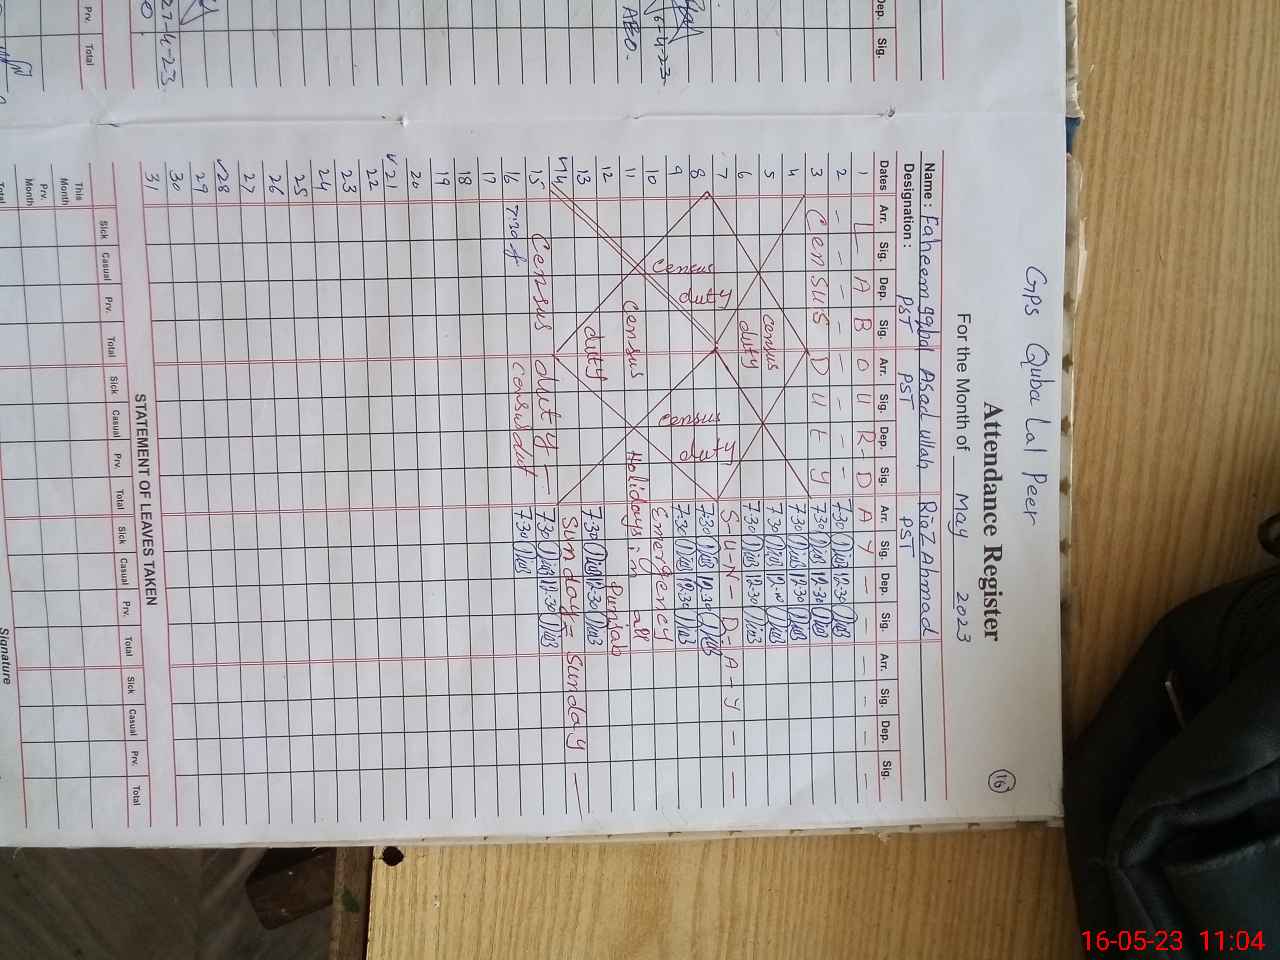 GPS Quba Lal Peer
Attendance Register
16
For the Month of May 2023
Name : Faheem Iqbal Asad ullah Riaz Ahmad
Designation : PST PST PST
Dates Arr. Sig. Dep. Sig. Arr. Sig. Dep. Sig. Arr. Sig. Dep. Sig. Arr. Sig. Dep. Sig.
1 L A B O U R - D A Y - - - - -
2 - - - - - - - - 730 12:30
3 Census Duty 730 12:30
4 730 12:30
5 census duty 730
6 730 12:30
7 S-U-N-D-A-Y - -
8 census duty census duty 730 12:30
9 730 12:30
10 Emergency
11 census duty Holidays in all
12 Punjab
13 730 12:30
14 Sunday = Sunday -
15 Census duty - 730 12:30
16 7:30 census 730
17
18
19
20
21
22
23
24
25
26
27
28
29
30
31
STATEMENT OF LEAVES TAKEN
Sick Casual Prv. Total Sick Casual Prv. Total Sick Casual Prv. Total Sick Casual Prv. Total
This Month
Prv. Month
Total
Signature
Dep. Sig.
6-4-23
ABO.
27-4-23
Prv. Total
16-05-23 11:04